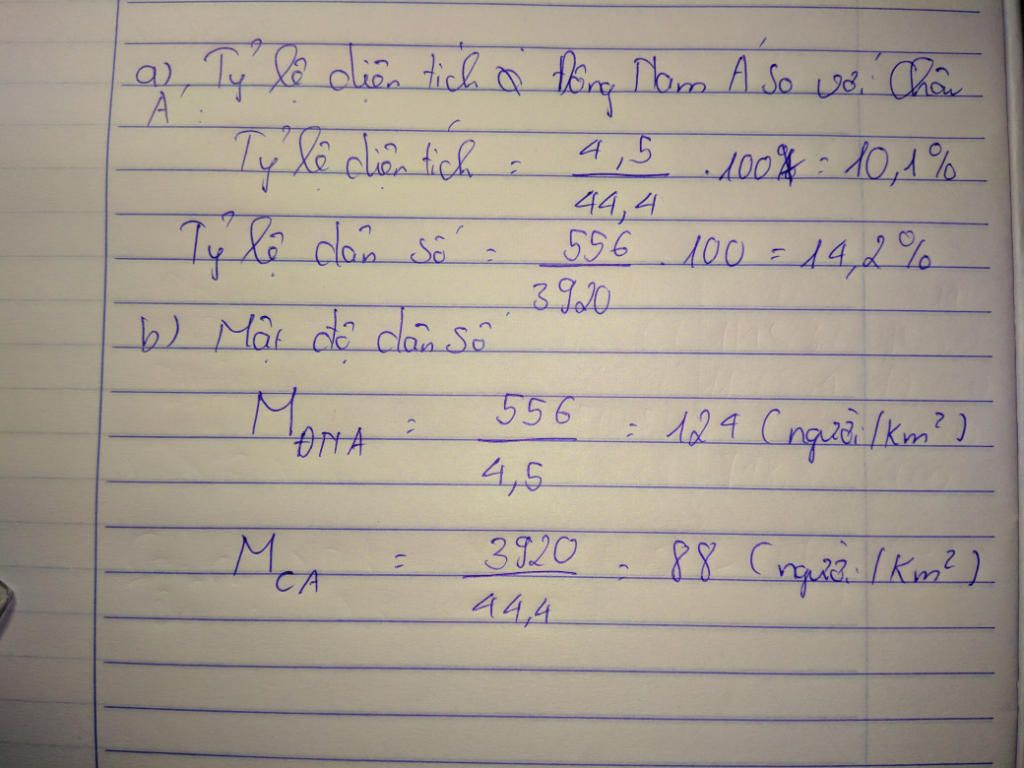 a), Tỷ lệ diện tích ở Đông Nam Á so với Châu
Á :
Tỷ lệ diện tích = 4,5 / 44,4 . 100% = 10,1%
Tỷ lệ dân số = 556 / 3920 . 100 = 14,2%
b) Mật độ dân số
M ĐNA = 556 / 4,5 = 124 (người/km²)
M CA = 3920 / 44,4 = 88 (người/km²)